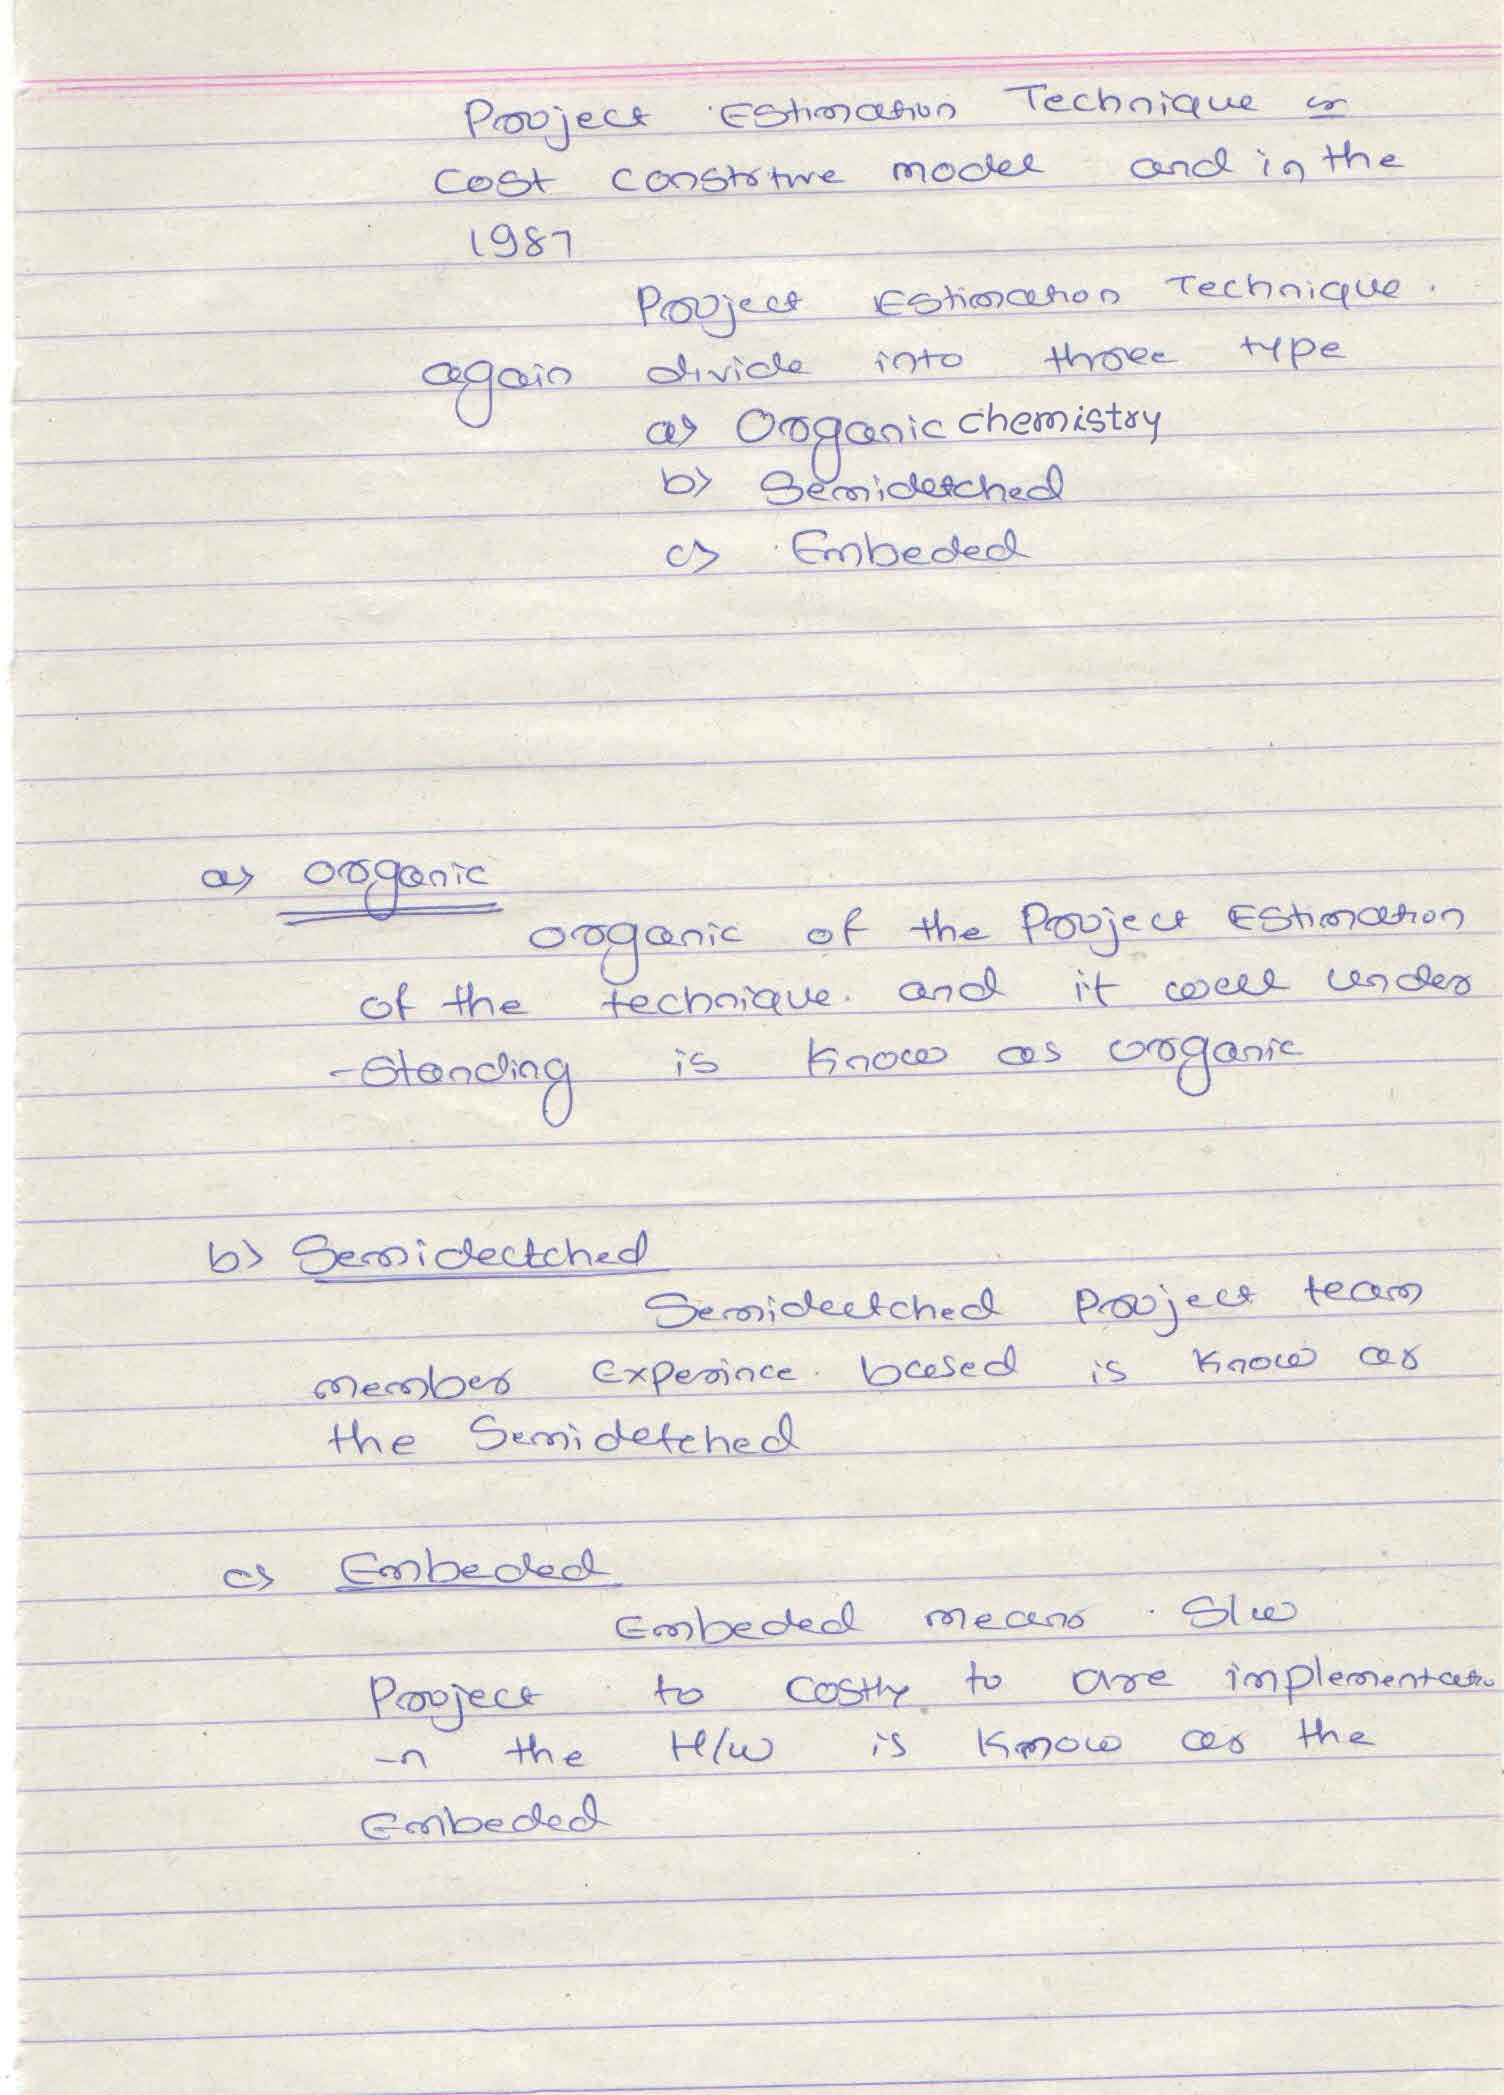 Project Estimation Technique is
cost constrtive model and in the
1987
Project Estimation Technique.
again divide into three type
a> Organic chemistry
b> Semidetched
c> Embeded
a> organic
organic of the Project Estimation
of the technique. and it well under
-standing is know as organic
b> Semidectched
Semidectched Project team
member Experince. based is know as
the Semidetched
c> Embeded
Embeded means. S/w
Project to costly to are implementatio
-n the H/w is know as the
Embeded